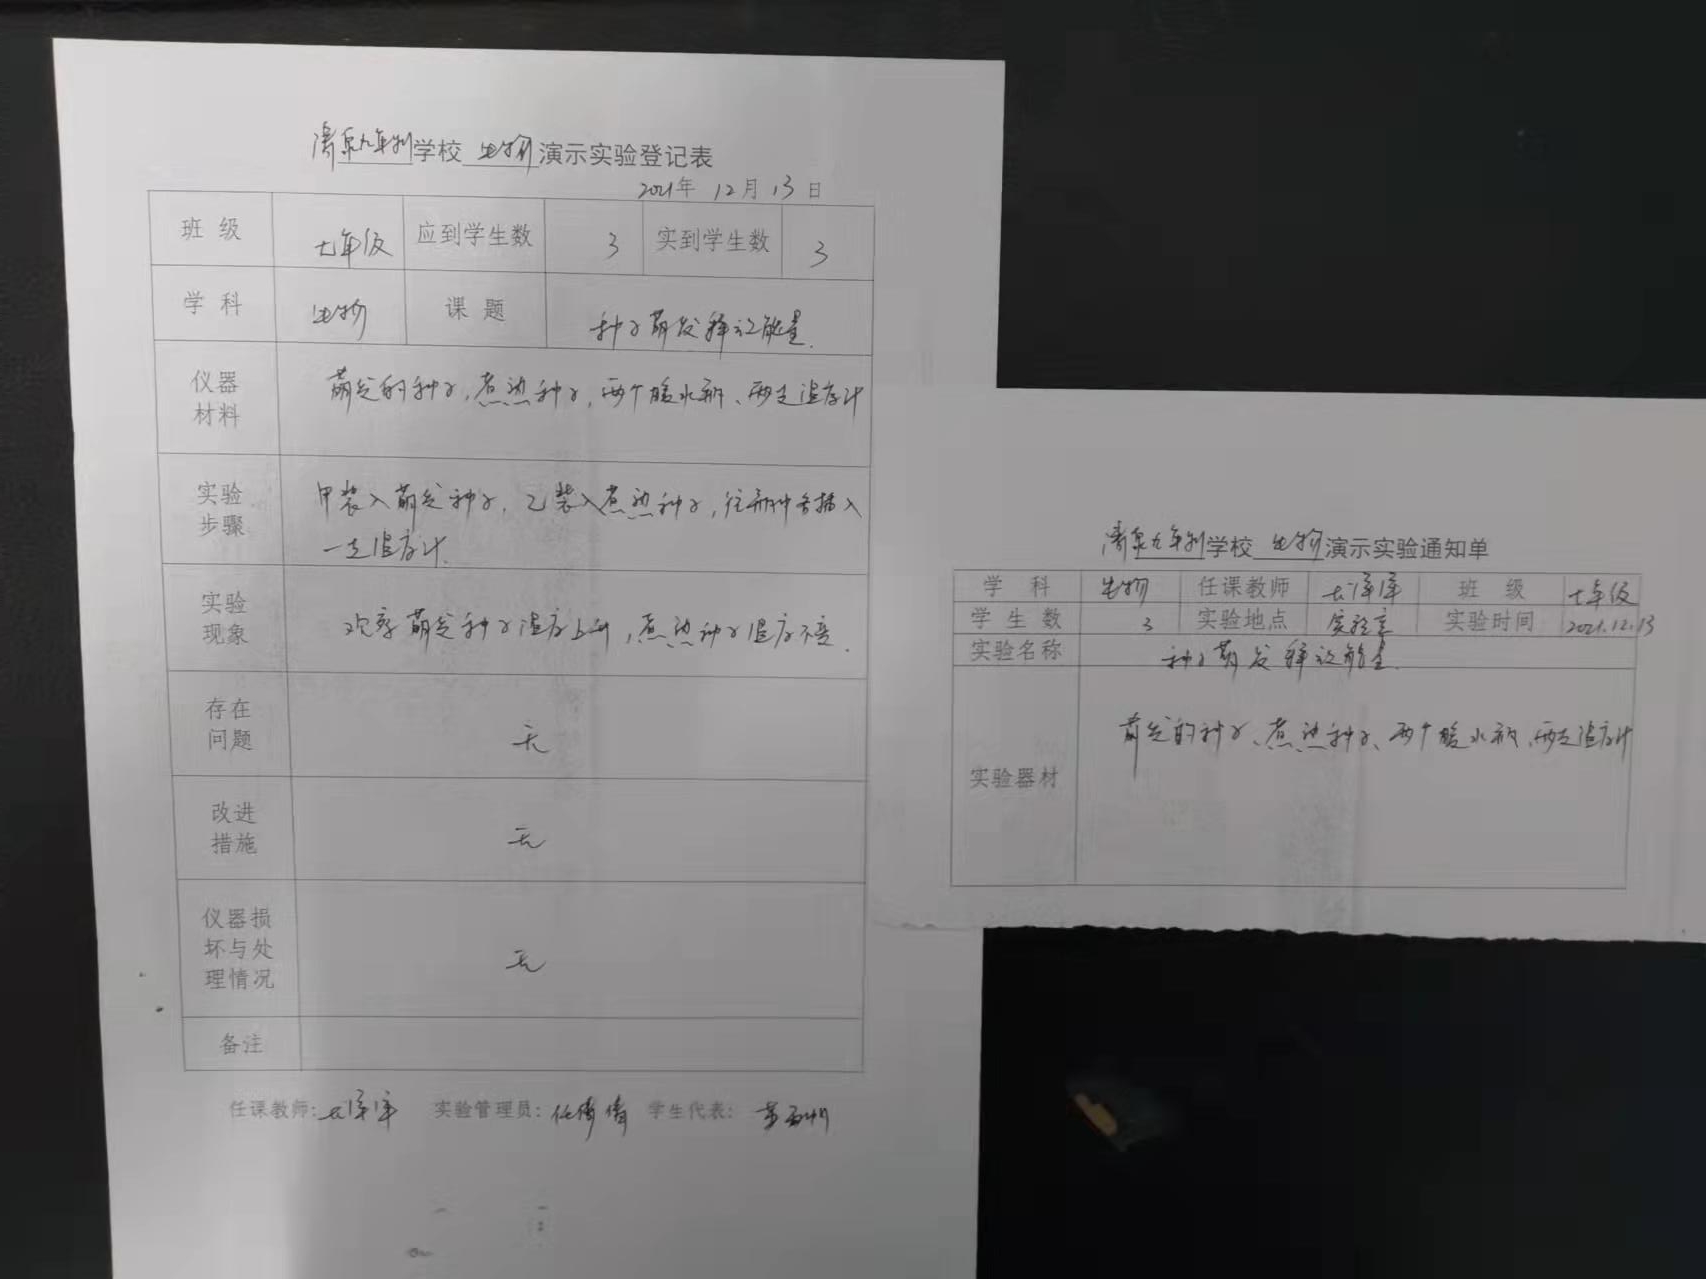 清泉九年制学校 生物 演示实验登记表
2021年 12月 13日
班级 七年级 应到学生数 3 实到学生数 3
学科 生物 课题 种子萌发释放能量.
仪器材料 萌发的种子,煮熟种子,两个暖水瓶、两支温度计
实验步骤 甲装入萌发种子,乙装入煮熟种子,往瓶中各插入
一支温度计.
实验现象 观察萌发种子温度上升,煮熟种子温度不变.
存在问题 无
改进措施 无
仪器损坏与处理情况 无
备注
任课教师: 实验管理员:任倩倩 学生代表:
清泉九年制学校 生物 演示实验通知单
学科 生物 任课教师 班级 七年级
学生数 3 实验地点 实验室 实验时间 2021.12.13
实验名称 种子萌发释放能量.
实验器材 萌发的种子、煮熟种子、两个暖水瓶、两支温度计